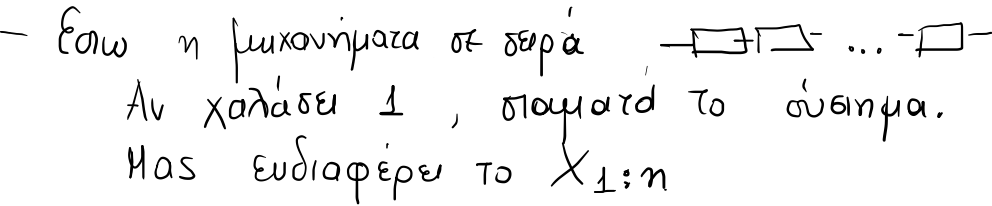 — Έστω n μηχανήματα σε σειρά ...
Αν χαλάσει 1, σταματά το σύστημα.
Μας ενδιαφέρει το X_{1:n}